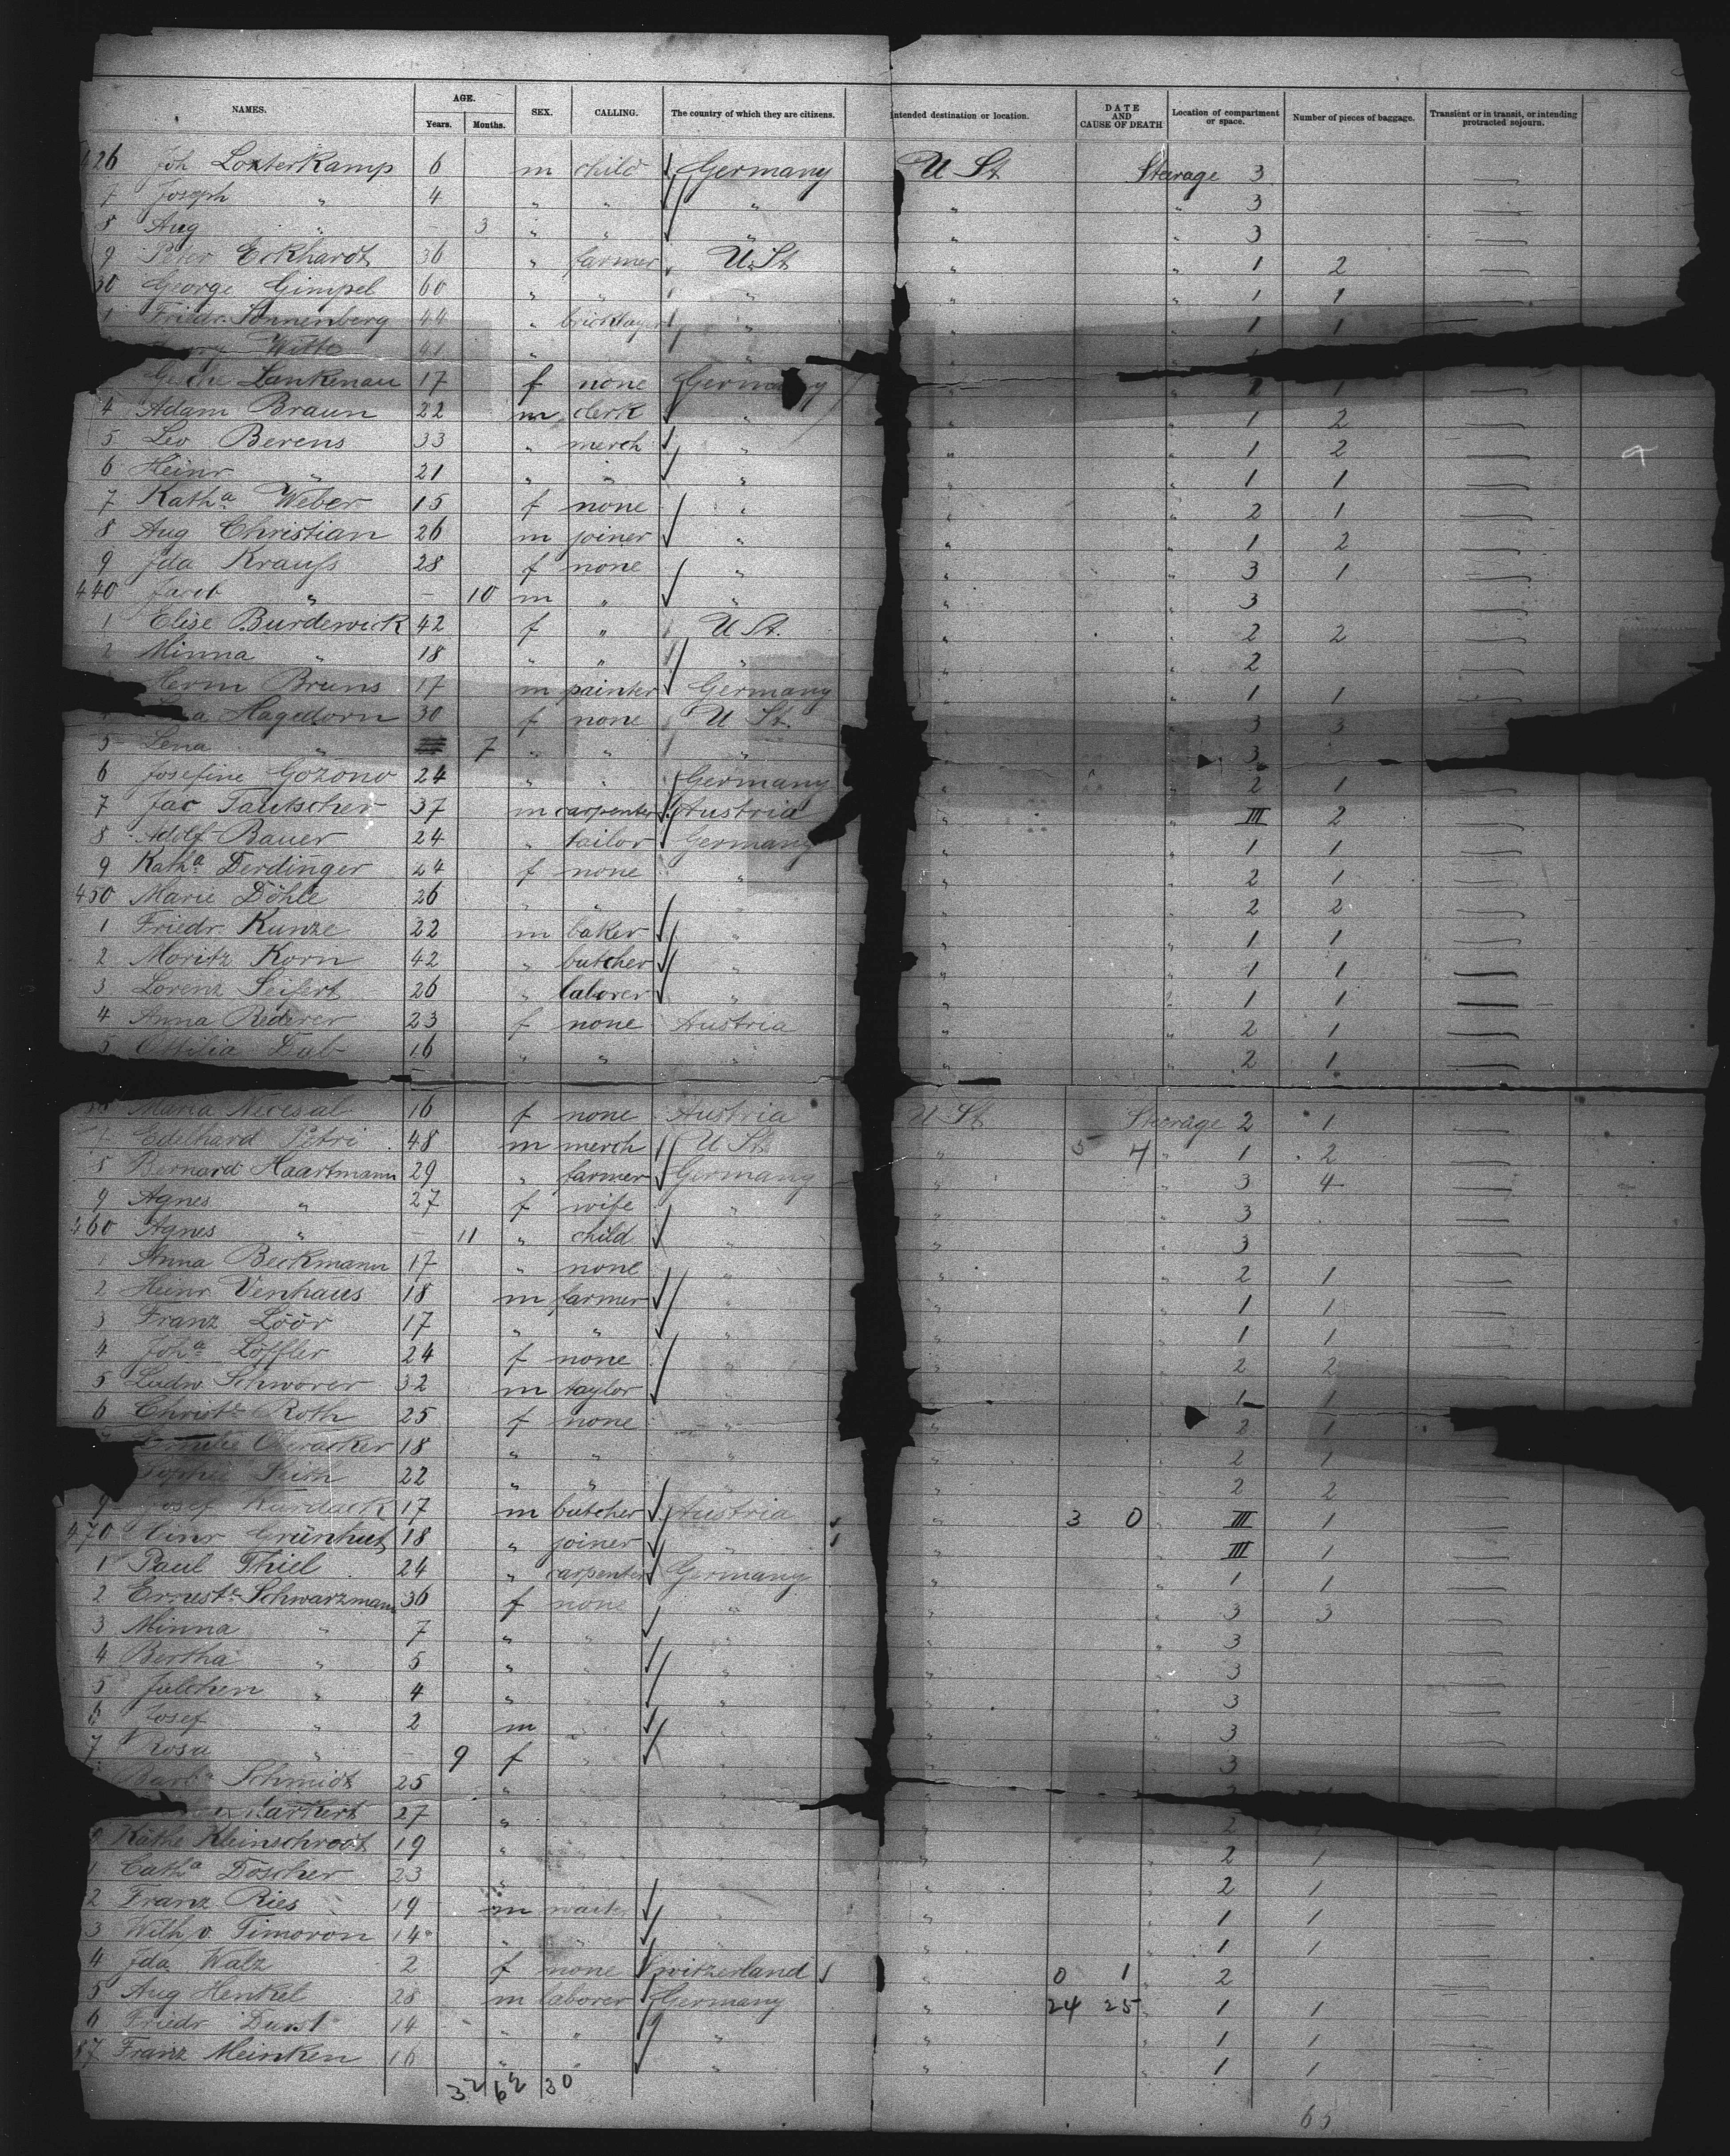 NAMES. AGE. Years. Months. SEX. CALLING. The country of which they are citizens. Intended destination or location. DATE AND CAUSE OF DEATH Location of compartment or space. Number of pieces of baggage. Transient or in transit, or intending protracted sojourn.
426 Joh Loxterkamp 6 m child Germany U St Steerage 3 —
7 Joseph " 4 " " " " " 3 —
8 Aug " – 3 " " " " " 3 —
9 Peter Eckhardt 36 " farmer U. St " " 1 2 —
30 George Gimpel 60 " " " " " 1 1 —
1 Friedr. Sonnenberg 44 " bricklayer " " " 1 1 —
Witte 41 " "
Lankenau 17 f none Germany " 2 1 —
4 Adam Braun 22 m clerk " " " 1 2 —
5 Leo Berens 33 " merch " " " 1 2 —
6 Heinr " 21 " " " " " 1 1 —
7 Kath.a Weber 15 f none " " " 2 1 —
8 Aug Christian 26 m joiner " " " 1 2 —
9 Ida Krauss 28 f none " " " 3 1 —
440 Jacob " – 10 m " " " " 3 —
1 Elise Burdewick 42 f " U St. " " 2 2 —
2 Minna " 18 " " " " " 2 —
Herm Bruns 17 m painter Germany " " 1 1 —
Hagedorn 30 f none U St. " " 3 3
5 Lena " 7 " " " " 3
6 Josefine Gozono 24 " " Germany " " 2 1 —
7 Jac Tautscher 37 m carpenter Austria " " III 2 —
8 Adolf Bauer 24 " tailor Germany " " 1 1 —
9 Kath.a Derdinger 24 f none " " " 2 1 —
450 Marie Döhle 26 " " " " " 2 2 —
1 Friedr Kunze 22 m baker " " " 1 1 —
2 Moritz Korn 42 " butcher " " " 1 1 —
3 Lorenz Seifert 26 " laborer " " " 1 1 —
4 Anna Rederer 23 f none Austria " " 2 1 —
5 Ottilia Dub 16 " " " " " 2 1 —
Maria Necesal 16 f none Austria U St Steerage 2 1 —
7 Edelhard Petri 48 m merch U St. " 5 4 " 1 2 —
8 Bernard Haartmann 29 " farmer Germany " " 3 4 —
9 Agnes " 27 f wife " " " 3 —
460 Agnes " – 11 " child " " " 3 —
1 Anna Beckmann 17 " none " " " 2 1 —
2 Heinr Venhaus 18 m farmer " " " 1 1 —
3 Franz Löör 17 " " " " " 1 1 —
4 Joh.a Löffler 24 f none " " " 2 2 —
5 Ludw Schworer 32 m taylor " " " 1 1
6 Christ.e Roth 25 f none " " " 2 1
18 " " " " " 2 1
Sophie 22 " " " " " 2 2 —
9 Josef Kardack 17 m butcher Austria " 3 0 " III 1 —
470 Heinr Grünhut 18 " joiner " " " III 1 —
1 Paul Thiel 24 " carpenter Germany " " 1 1 —
2 Ernest.e Schwarzmann 36 f none " " " 3 3 —
3 Minna " 7 " " " " " 3 —
4 Bertha " 5 " " " " " 3 —
5 Julchen " 4 " " " " " 3 —
6 Josef " 2 m " " " " 3 —
7 Rosa " – 9 f " " " " 3
Barb.a Schmidt 25 " " " 2 1
27 " " " 2
Käthe Kleinschrodt 19 " " " " " 2 1 —
1 Cath.a Doscher 23 " " " " " 2 1 —
2 Franz Ries 19 m waiter " " " 1 1 —
3 Wilh v. Timoron 14 " " " " " 1 1 —
4 Ida Walz 2 f none Switzerland " 0 1 " 2 —
5 Aug Henkel 28 m laborer Germany " 24 25 " 1 1 —
6 Friedr Durst 14 " " " " " 1 1 —
87 Franz Meinken 16 " " " " " 1 1 —
32 62 30
65